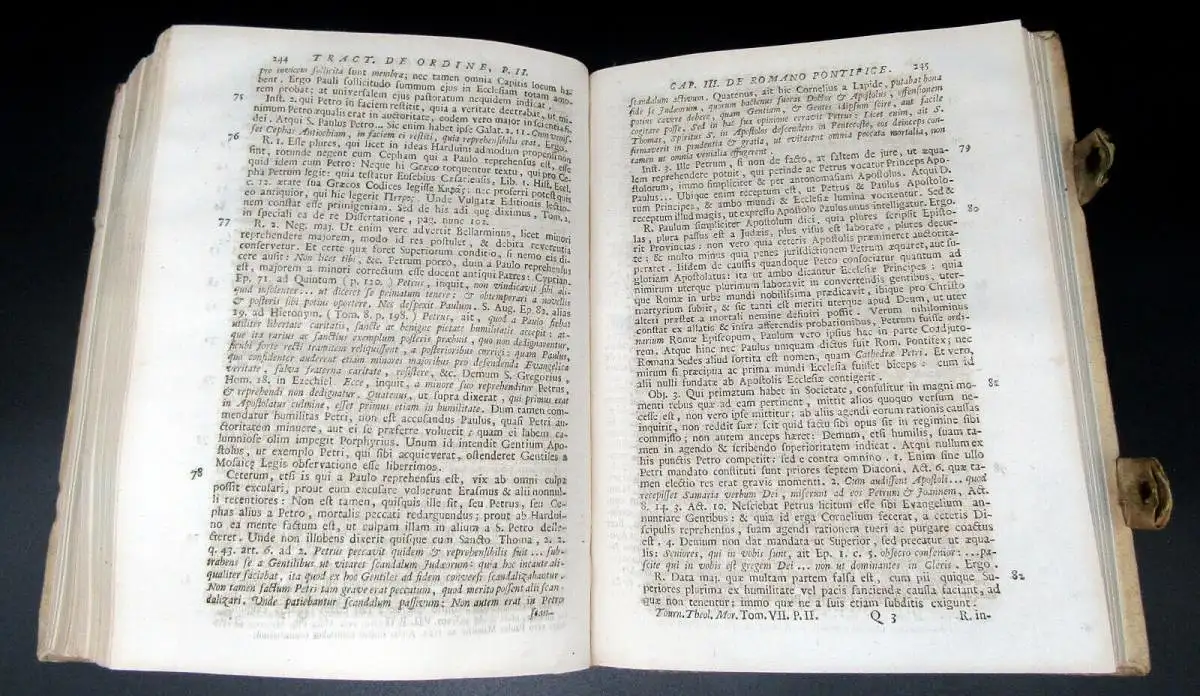 244 TRACT. DE ORDINE, P. II.
pro invicem sollicita sunt membra; nec tamen omnia Capitis locum ha-
bent. Ergo Pauli sollicitudo summum ejus in Ecclesiam totam amo-
rem probat; at universalem ejus pastoratum nequidem indicat.
75 Inst. 2. qui Petro in faciem restitit, quia a veritate deerrabat, ut mi-
nimum Petro æqualis erat in auctoritate, eodem vero major in scientia fi-
dei. Atqui S. Paulus Petro... Sic enim habet ipse Galat. 2. 11. Cum venis-
set Cephas Antiochiam, in faciem ei restiti, quia reprehensibilis erat. Ergo.
76 R. 1. Esse plures, qui licet in ideas Harduini admodum propensi non
sint, rotunde negent eum Cepham qui a Paulo reprehensus est, esse
quid idem cum Petro: Neque hi Græco torquentur textu, qui pro Ce-
pha Petrum legit: quia testatur Eusebius Cæsariensis, Lib. 1. Hist. Eccl.
c. 12. ætate sua Græcos Codices legisse Κηφᾶς; nec proferri potest quis
eo antiquior, qui hic legerit Πέτρος. Unde Vulgatæ Editionis lectio-
nem constat esse primigeniam. Sed de his adi quæ diximus, Tom. 2,
in speciali ea de re Dissertatione, pag. nunc 102.
77 R. 2. Neg. maj. Ut enim vere advertit Bellarminus, licet minori
reprehendere majorem, modo id res postulet, & debita reverentia
conservetur. Et certe quæ foret Superiorum conditio, si nemo eis di-
cere ausit: Non licet tibi, &c. Petrum porro, dum a Paulo reprehensus
est, majorem a minori correctum esse docent antiqui Patres: Cyprian.
Ep. 71. ad Quintum (p. 120.) Petrus, inquit, non vindicavit sibi ali-
quid insolenter... ut diceret se primatum tenere; & obtemperari a novellis
& posteris sibi potius oportere. Nec despexit Paulum. S. Aug. Ep. 82. alias
19. ad Hieronym. (Tom. 8. p. 198.) Petrus, ait, quod a Paulo fiebat
utiliter libertate caritatis, sancte ac benigne pietate humilitatis accepit: at-
que ita rarius ac sanctius exemplum posteris præbuit, quo non dedignarentur,
sicubi forte recti tramitem reliquissent, a posterioribus corrigi; quam Paulus,
quo confidenter auderent etiam minores majoribus pro defendenda Evangelica
veritate, salva fraterna caritate, resistere, &c. Demum S. Gregorius,
Hom. 18. in Ezechiel Ecce, inquit, a minore suo reprehenditur Petrus,
& reprehendi non dedignatur. Quatenus, ut supra dixerat, qui primus erat
in Apostolatus culmine, esset primus etiam in humilitate. Dum tamen com-
mendatur humilitas Petri, non est accusandus Paulus, quasi Petri au-
ctoritatem minuere, aut ei se præferre voluerit; quam ei labem ca-
lumniose olim impegit Porphyrius. Unum id intendit Gentium Apo-
stolus, ut exemplo Petri, qui sibi acquieverat, ostenderet Gentiles a
Mosaicæ Legis observatione esse liberrimos.
78 Ceterum, etsi is qui a Paulo reprehensus est, vix ab omni culpa
possit exculari, prout eum excusare voluerunt Erasmus & alii nonnul-
li recentiores: Non est tamen, quisquis ille sit, seu Petrus, seu Ce-
phas alius a Petro, mortalis peccati redarguendus; prout ab Hardui-
no ea mente factum est, ut culpam illam in alium a S. Petro defle-
cteret. Unde non illobens dixerit quisque cum Sancto Thoma, 2. 2.
q. 43. art. 6. ad 2. Petrus peccavit quidem & reprehensibilis fuit... sub-
trahens se a Gentilibus ut vitaret scandalum Judæorum: quia hoc incaute ali-
qualiter faciebat, ita quod ex hoc Gentiles ad fidem conversi scandalizabantur.
Non tamen factum Petri tam grave erat peccatum, quod merito possent alii scan-
dalizari. Unde patiebantur scandalum passivum: Non autem erat in Petro
scan-
CAP. III. DE ROMANO PONTIFICE. 245
scandalum activum. Quatenus, ait hic Cornelius a Lapide, putabat bona
fide se Judæorum, quorum hactenus fuerat Doctor & Apostolus, offensionem
potius cavere debere, quam Gentium, & Gentes idipsum scire, aut facile
cogitare posse. Sed in hac sua opinione erravit Petrus: Licet enim, ait S.
Thomas, Spiritus S. in Apostolos descendens in Pentecoste, eos deinceps con-
firmaverit in prudentia & gratia, ut evitarent omnia peccata mortalia, non
tamen ut omnia venialia effugerent.
Inst. 3. Ille Petrum, si non de facto, at saltem de jure, ut æqua- 79
lem reprehendere potuit, qui perinde ac Petrus vocatur Princeps Apo-
stolorum, immo simpliciter & per antonomasiam Apostolus. Atqui D.
Paulus... Ubique enim receptum est, ut Petrus & Paulus Apostolo-
rum Principes, & ambo mundi & Ecclesiæ lumina vocitentur. Sed &
receptum illud magis, ut expresso Apostolo Paulus unus intelligatur. Ergo.
R. Paulum simpliciter Apostolum dici, quia plures scripsit Episto- 80
las, plura passus est a Judæis, plus visus est laborare, plures decur-
rit Provincias: non vero quia ceteris Apostolis præmineret auctoritate
te; & multo minus quia penes jurisdictionem Petrum æquaret, aut su-
peraret. Iisdem de caussis quandoque Petro consociatur quantum ad
gloriam Apostolatus: ita ut ambo dicantur Ecclesiæ Principes: quia
nimirum uterque plurimum laboravit in convertendis gentibus, uter-
que Romæ in urbe mundi nobilissima prædicavit, ibique pro Christo
martyrium subiit, & sic tanti est meriti uterque apud Deum, ut uter
alteri præstet a mortali nemine definiri possit. Verum nihilominus
constat ex allatis & infra afferendis probationibus, Petrum fuisse ordi-
narium Romæ Episcopum, Paulum vero ipsius hac in parte Coadjuto-
rem. Atque hinc nec Paulus unquam dictus fuit Rom. Pontifex; nec
Romana Sedes aliud sortita est nomen, quam Cathedræ Petri. Et vero,
mirum si præcipua ac prima mundi Ecclesia fuisset biceps: cum id
alii nulli fundatæ ab Apostolis Ecclesiæ contigerit.
Obj. 3. Qui primatum habet in Societate, consulitur in magni mo- 81
menti rebus quæ ad eam pertinent, mittit alios quoquo versum ne-
cesse est, non vero ipse mittitur: ab aliis agendi eorum rationis caussas
inquirit, non reddit suæ: scit quid factu sibi opus sit in regimine sibi
commisso; non autem anceps hæret: Demum, etsi humilis, suam ta-
men in agendo & scribendo superioritatem indicat. Atqui nullum ex
his punctis Petro competit: sed e contra omnino. 1. Enim sine ullo
Petri mandato constituti sunt priores septem Diaconi, Act. 6. quæ ta-
men electio res erat gravis momenti. 2. Cum audissent Apostoli... quod
recepisset Samaria verbum Dei, miserunt ad eos Petrum & Joannem, Act.
8. 14. 3. Act. 10. Nesciebat Petrus licitum esse sibi Evangelium an-
nuntiare Gentibus: & quia id erga Cornelium fecerat, a ceteris Di-
scipulis reprehensus, suam agendi rationem tueri ac purgare coactus
est. 4. Denium non dat mandata ut Superior, sed precatur ut æqua-
lis: Seniores, qui in vobis sunt, ait Ep. 1. c. 5. obsecro consenior:...pa-
scite qui in vobis est gregem Dei... non ut dominantes in Cleris. Ergo.
R. Data maj. quæ multam partem falsa est, cum pii quique Su- 82
periores plurima ex humilitate vel pacis sanciendæ causa faciant, ad
quæ non tenentur; immo quæ ne a suis etiam subditis exigunt.
Tourn. Theol. Mor. Tom. VII. P. II. Q 3 R. in-